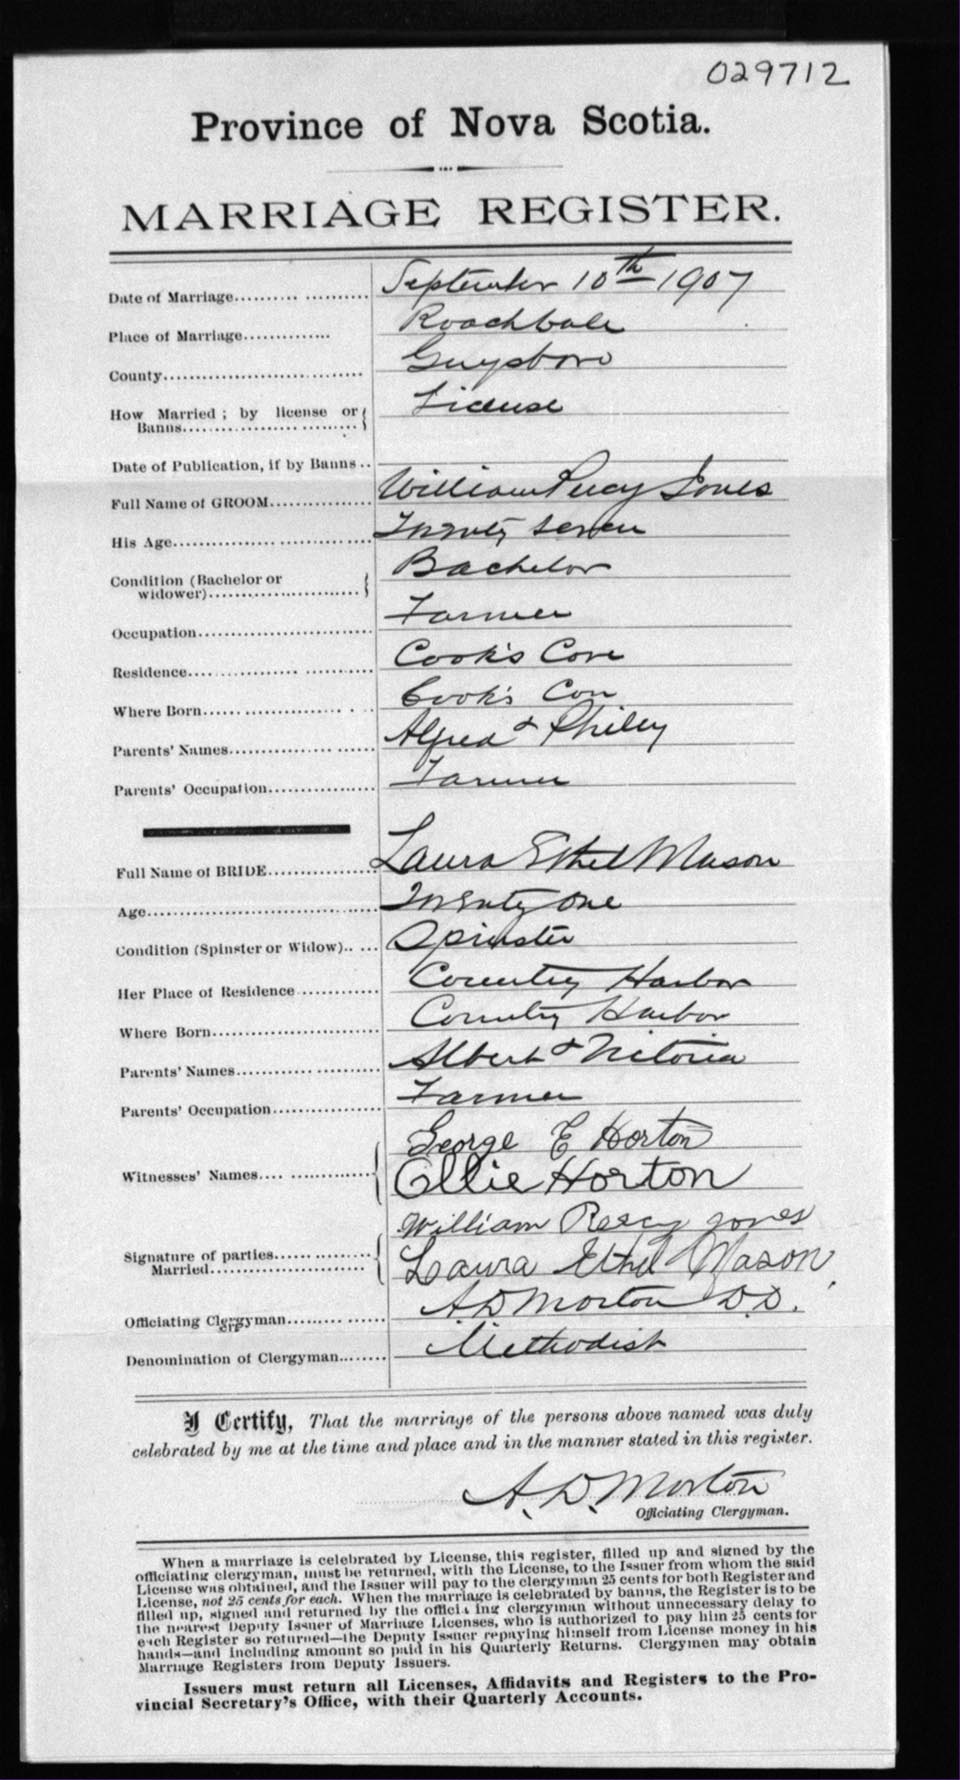 029712
Province of Nova Scotia.
MARRIAGE REGISTER.
Date of Marriage.......... ........... September 10th 1907
Place of Marriage.............. Roachvale
County................................ Guysboro
How Married ; by license or { License
Banns.............................
Date of Publication, if by Banns ..
Full Name of GROOM............... William Percy Jones
His Age................................ Twenty seven
Condition (Bachelor or { Bachelor
widower)..........................
Occupation............................ Farmer
Residence............................. Cook's Cove
Where Born........................... Cook's Cove
Parents' Names...................... Alfred & Philey
Parents' Occupation................. Farmer
Full Name of BRIDE................ Laura Ethel Mason
Age.................................... Twenty one
Condition (Spinster or Widow).. ... Spinster
Her Place of Residence ............ Country Harbor
Where Born........................... Country Harbor
Parents' Names...................... Albert & Victoria
Parents' Occupation................ Farmer
George E Horton
Witnesses' Names.... ............. { Ellie Horton
William Percy Jones
Signature of parties............... {
Married........................... Laura Ethel Mason
Officiating Clergyman............... A D Morton D.D.
Denomination of Clergyman........ Methodist
I Certify, That the marriage of the persons above named was duly
celebrated by me at the time and place and in the manner stated in this register.
A. D. Morton
Officiating Clergyman.
When a marriage is celebrated by License, this register, filled up and signed by the
officiating clergyman, must be returned, with the License, to the Issuer from whom the said
License was obtained, and the Issuer will pay to the clergyman 25 cents for both Register and
License, not 25 cents for each. When the marriage is celebrated by banns, the Register is to be
filled up, signed and returned by the officiating clergyman without unnecessary delay to
the nearest Deputy Issuer of Marriage Licenses, who is authorized to pay him 25 cents for
each Register so returned—the Deputy Issuer repaying himself from License money in his
hands—and including amount so paid in his Quarterly Returns. Clergymen may obtain
Marriage Registers from Deputy Issuers.
Issuers must return all Licenses, Affidavits and Registers to the Pro-
vincial Secretary's Office, with their Quarterly Accounts.